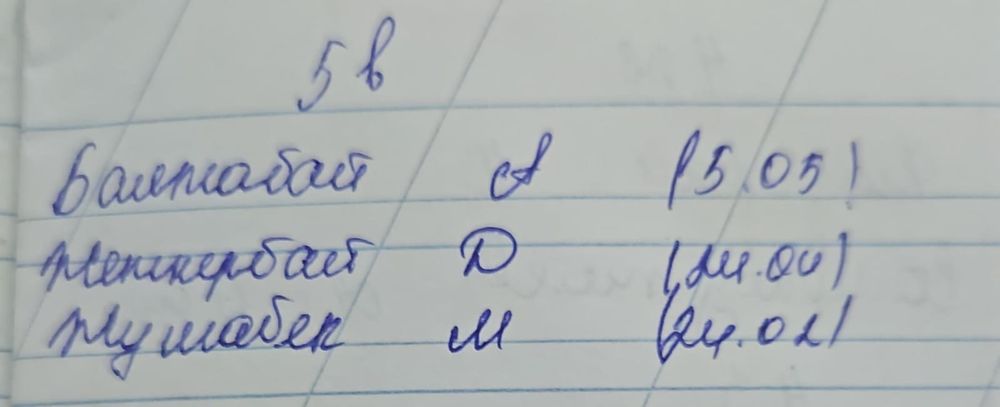 5 в
Балтабай А (5.05)
Женисбай Д (24.04)
Жумабек М (24.02)